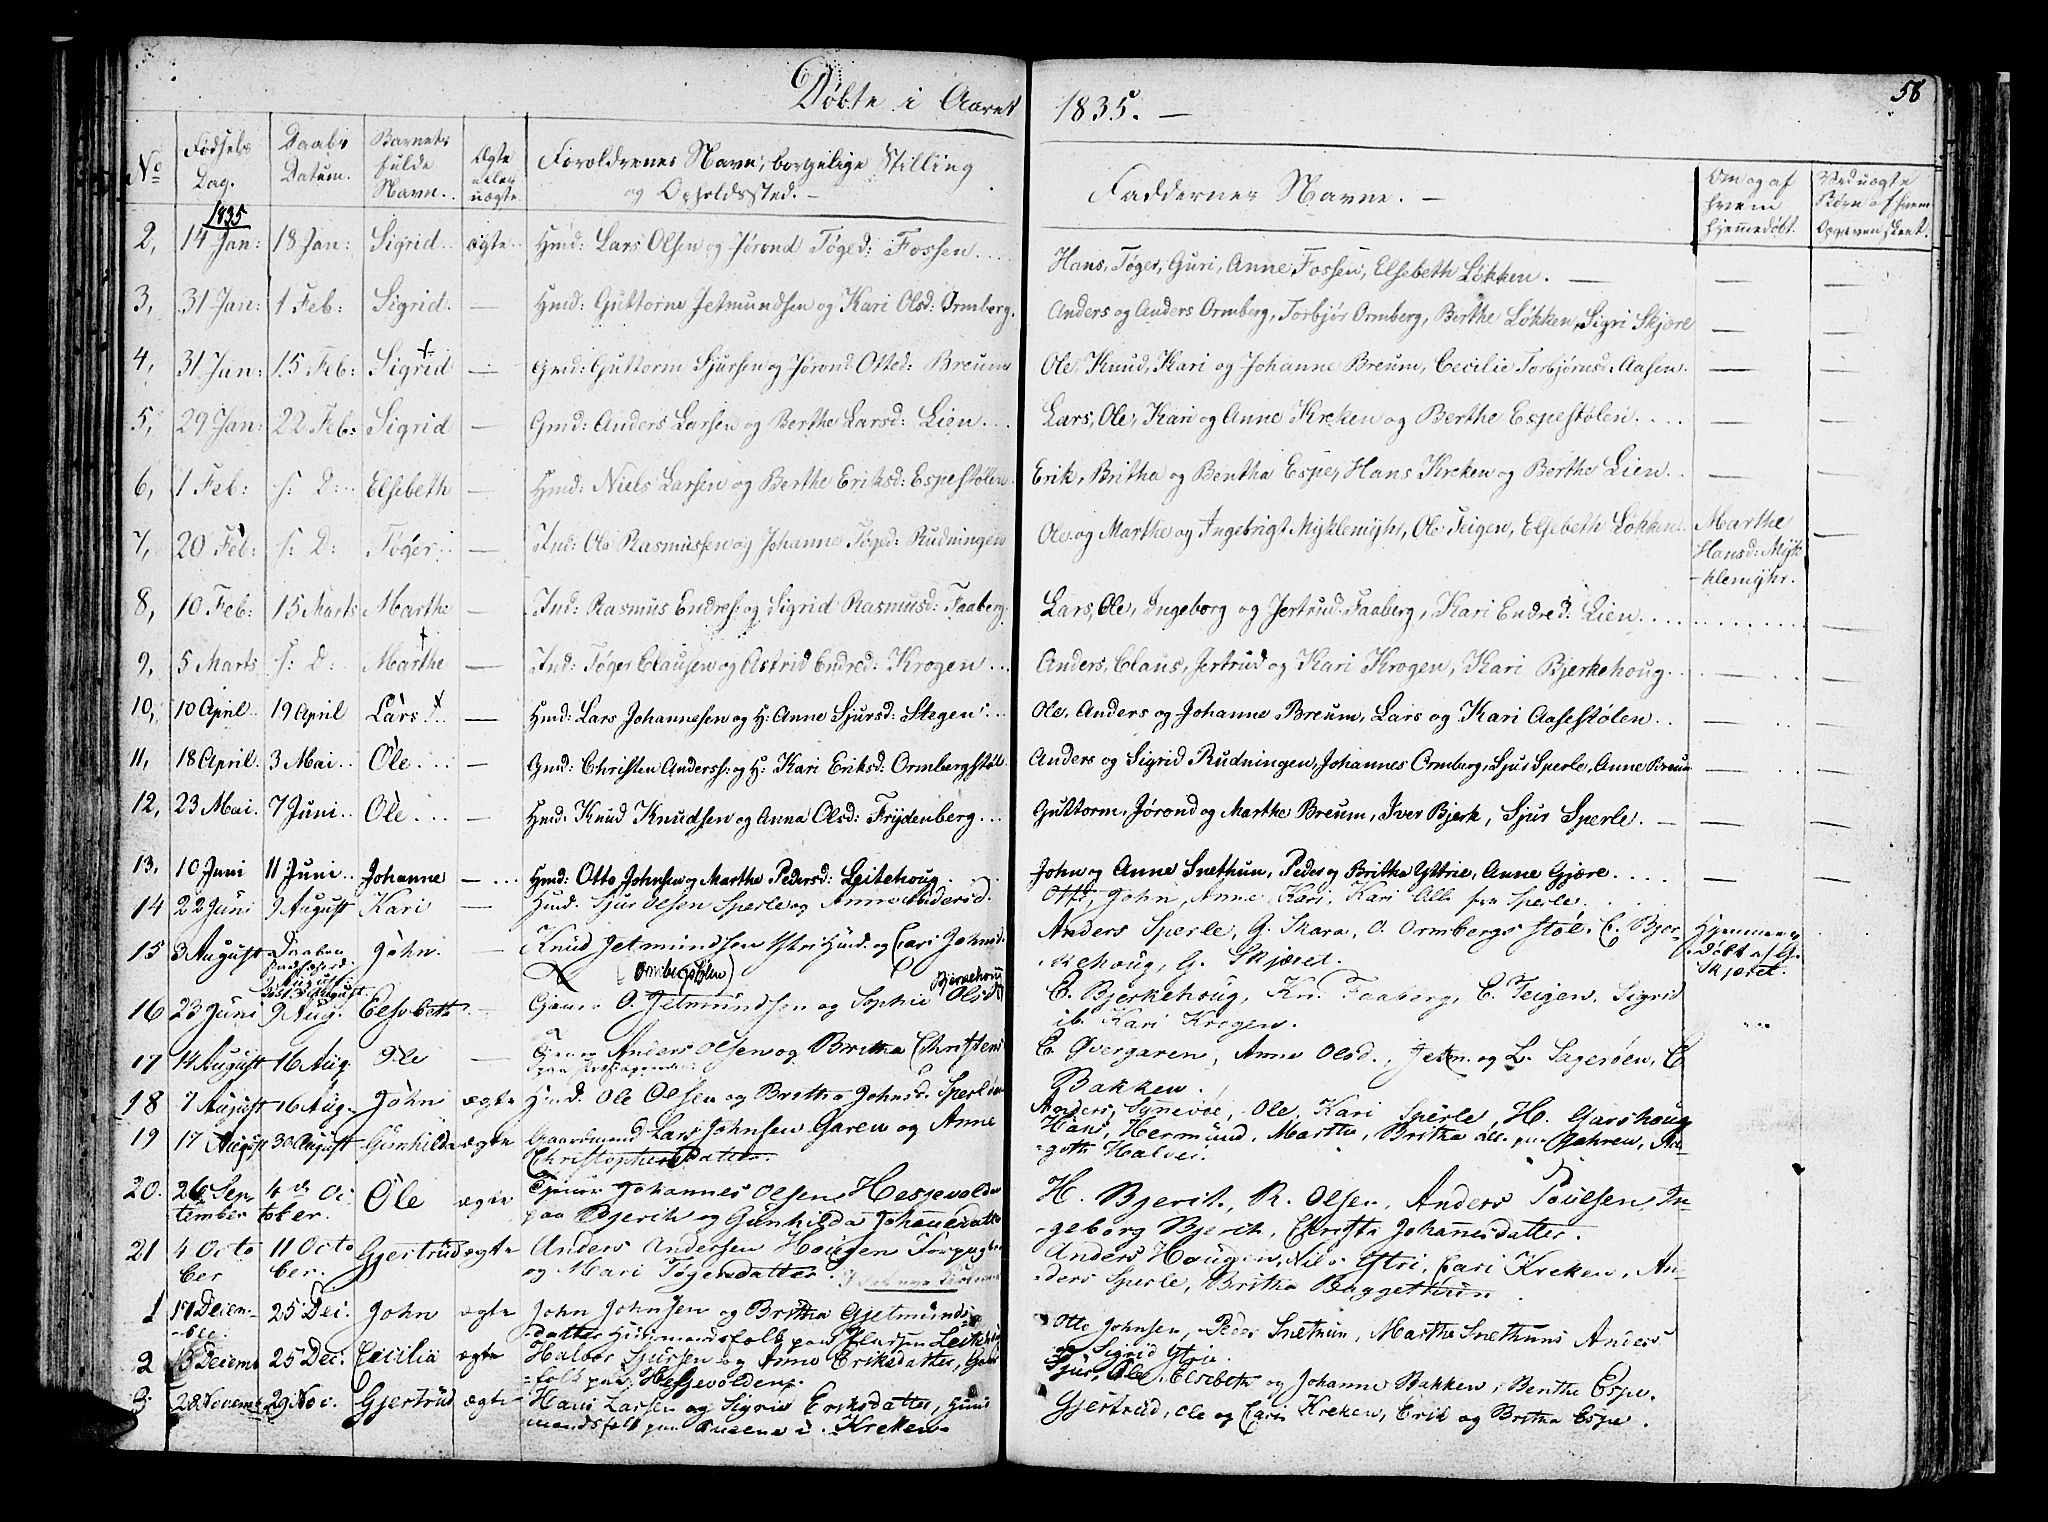 58
Døbte i Aaret 1835. —
No Fødsels Dag. Daabs Datum. Barnets fulde Navn. Ægte eller uægte Forældrenes Navn, borgelige Stilling og Opholdssted. — Faddernes Navne. — Om og af hvem hjemmedøbt. Ved uægte Børn af hvem Opgaven skeet.
1835
2, 14 Jan: 18 Jan: Sigrid ægte Hmd: Lars Olsen og Jørond Tøged: Fossen Hans, Tøger, Guri, Anne Fossen, Elsebeth Løkken. — — —
3, 31 Jan: 1 Feb: Sigrid. — Hmd: Guttorm Jetmundsen og Kari Olsd: Ormberg. Anders og Anders Ormberg, Torbjør Ormberg, Berthe Løkken, Sigri Skjøre — —
4, 31 Jan: 15 Feb: Sigrid — Gmd: Guttorm Sjursen og Jørond Otted: Breum Ole, Knud, Kari og Johanne Breum, Cecilie Torbjørnsd: Aasen. — —
5, 29 Jan: 22 Feb: Sigrid — Gmd: Anders Larsen og Berthe Larsd: Lien Lars, Ole, Kari og Anne Kreken og Berthe Espestølen — —
6, 1 Feb: s: D: Elsebeth — Hmd: Niels Larsen og Berthe Eriksd: Espestølen. Erik, Britha og Bentha Espe, Hans Kreken og Berthe Lien — —
7, 20 Feb: s: D: Tøger — Ind: Ole Rasmussen og Johanne Tøged: Rudningen Ole og Marthe og Ingebrigt Myklemyhr, Ole Teigen, Elsebeth Løkken. Marthe —
Hansd: Myk-
-klemyhr.
8, 10 Feb: 15 Marts Marthe — Ind: Rasmus Endres: og Sigrid Rasmusd: Faaberg. Lars, Ole, Ingeborg og Jertrud Faaberg, Kari Endred: Lien —
9, 5 Marts s: D: Marthe — Ind: Tøger Clausen og Astrid Endred: Krogen Anders, Claus, Jertrud og Kari Krogen, Kari Bjerkehoug — —
10, 10 April 19 April Lars — Hmd: Lars Johannesen og H: Anne Sjursd: Stegen Ole, Anders og Johanne Breum, Lars og Kari Aasestølen — —
11, 18 April 3 Mai Ole — Gmd: Christen Anderss: og H: Kari Eriksd: Ormbergstøl. Anders og Sigrid Rudningen, Johannes Ormberg, Sjur Sperle, Anne Breum — —
12, 23 Mai. 7 Juni Ole — Hmd: Knud Knudsen og Anna Olsd: Frydenberg Guttorm, Jørond og Marthe Breum, Iver Bjerk, Sjur Sperle. — —
13, 10 Juni 11 Juni Johanne — Hmd: Otto Johnsen og Marthe Pedersd: Leitehoug John og Anne Snethun, Peder og Britha Yttrie, Anne Gjøre — —
14 22 Juni 9 August Kari — Hmd. Sjur Olsen Sperle og Anne Andersd. Otto, John, Anne, Kari, Kari Alle fra Sperle.
15 3 August John. — Knud Jetmundsen Ytri Hmd. og Cari Johnsd. Anders Sperle, G. Skara, O. Ormbergsstøl. C. Bjer- Hjemme-
(Ombergstølen) -kehoug, G. Skjøred. døbt af G.
Skjøret.
16 23 Juni 9 Aug. Elsebeth — O. Jetmundsen og Sophie Olsd. Bjerkehoug C. Bjerkehoug, Kn. Faaberg, C. Teigen, Sigrid
ib. Kari Krogen.
17 14 August 16 Aug. Ole — Tjener Anders Olsen og Britha Christens C. Øvergaren, Anne Olsd., Jetm. og L. Sagerøen, C
Bakken.
18 7 August 16 Aug. John ægte Hmd. Ole Olsen og Britha Johnsd. Sperle Anders, Synevøe, Ole, Kari Sperle, H. Gareshoug
19 17 August 30 August Gunhilda ægte Gaardmand Lars Johnsen Garen og Anne Hans, Hermund, Martha, Britha alle paa Gahren, An-
Christophersdatter. -gethe Halvei.
20. 26 Sep- 4de Oc- Ole ægte Tjener Johannes Olsen Hesjevolden H. Bjerik, R. Olsen, Anders Poulsen, In-
tember tober. paa Bjerik og Gunhilda Johannesdatter -geborg Bjerik, Christi Johanesdatter.
21 4 Octo 11 Octo Gjertrud ægte Anders Andersen Hougen Anders Hougen, Nils Ytri, Cari Kreken, An-
ber ber. og Mari Tøgersdatter. -ders Sperle, Britha Baggethun.
1 17 Decem- 25 Dec. John ægte John Johnsen og Britha Gjetmunds- Otto Johnsen, Peder Snetrum, Marthe Snethuns Anders
-ber. -datter Huusmandsfolk paa og Sigrid Ytrie.
2 13 Decemb 25 Dec. Cecilia ægte Halvor Sjursen og Anne Eriksdatter, Sjur, Ole, Elsebeth og Johanne Bakken, Benthe Espe.
-folk paa Hesjevolden.
3 28 Novemb 29 Nov. Gjertrud ægte Hans Larsen og Sigrid Eriksdatter, Huus Gjertrud, Ole og Cari Kreken, Erik og Britha Espe.
mandsfolk paa Kreken